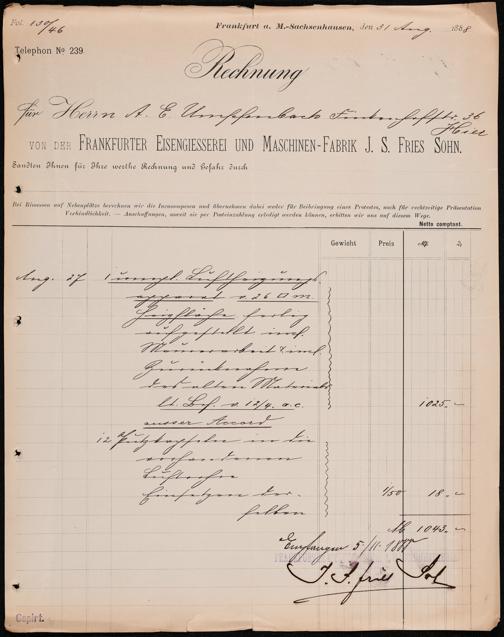 Fol. 130/46
Frankfurt a. M.-Sachsenhausen, den 31 Aug. 1888
Telephon No 239.
Rechnung
für Herrn A. E. Umpfenbach Finkenhofstr. 36
Hier
VON DER FRANKFURTER EISENGIESSEREI UND MASCHINEN-FABRIK J. S. FRIES SOHN.
Sandten Ihnen für Ihre werthe Rechnung und Gefahr durch
Bei Rimessen auf Nebenplätze berechnen wir die Incassospesen und übernehmen dabei weder für Beibringung eines Protestes, noch für rechtzeitige Präsentation
Verbindlichkeit. — Anschaffungen, soweit sie per Posteinzahlung erledigt werden können, erbitten wir uns auf diesem Wege.
Netto comptant.
Gewicht Preis M. ₰
Aug. 27 1 Luftheizungs
apparat v. 26 □ m.
Heizfläche fertig
aufgestellt incl.
Maurerarbeit & incl.
Zurücknahme
des alten Materials
lt. Brf. v. 12/4. a.c. 1025.-
ausser Accord
12 Putzkapseln in die
vorhandenen
Luftrohre
Einsetzen der-
selben 1/50 18.-
M. 1043.-
Empfangen 5/11. 1888
J. S. Fries Sohn
Copirt.